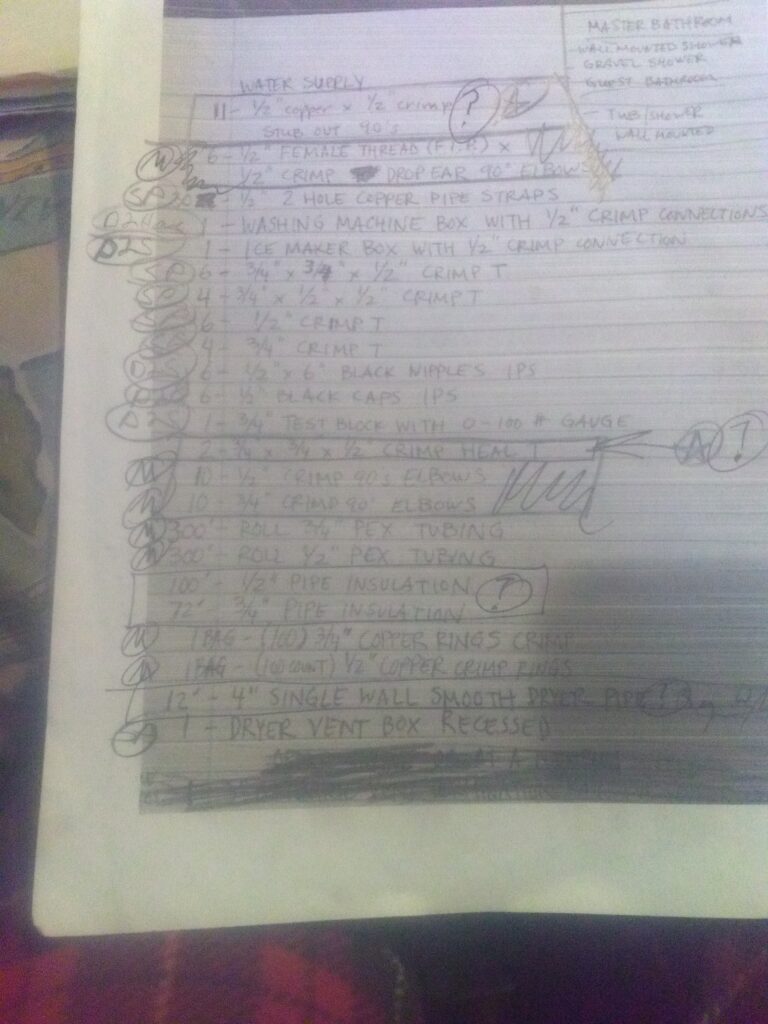 MASTER BATHROOM
- WALL MOUNTED SHOWER
GRAVEL SHOWER
- GUEST BATHROOM
- TUB/SHOWER
WALL MOUNTED
WATER SUPPLY
11 - 1/2" copper x 1/2" crimp ? A
STUB OUT 90's
6 - 1/2" FEMALE THREAD (F.I.P.) x
1/2" CRIMP DROP EAR 90° ELBOWS
20 - 1/2" 2 HOLE COPPER PIPE STRAPS
1 - WASHING MACHINE BOX WITH 1/2" CRIMP CONNECTIONS
D25 1 - ICE MAKER BOX WITH 1/2" CRIMP CONNECTION
6 - 3/4" x 3/4" x 1/2" CRIMP T
4 - 3/4" x 1/2" x 1/2" CRIMP T
6 - 1/2" CRIMP T
4 - 3/4" CRIMP T
6 - 1/2" x 6" BLACK NIPPLES IPS
6 - 1/2" BLACK CAPS IPS
D25 1 - 3/4" TEST BLOCK WITH 0-100 # GAUGE
2 - 3/4 x 3/4 x 1/2" CRIMP T A ?
10 - 1/2" CRIMP 90's ELBOWS
10 - 3/4" CRIMP 90° ELBOWS
300' - ROLL 3/4" PEX TUBING
300' - ROLL 1/2" PEX TUBING
100' - 1/2" PIPE INSULATION ?
72' 3/4" PIPE INSULATION
1 BAG - (100) 3/4" COPPER RINGS CRIMP
1 BAG - (100 COUNT) 1/2" COPPER CRIMP RINGS
12' - 4" SINGLE WALL SMOOTH DRYER PIPE
1 - DRYER VENT BOX RECESSED